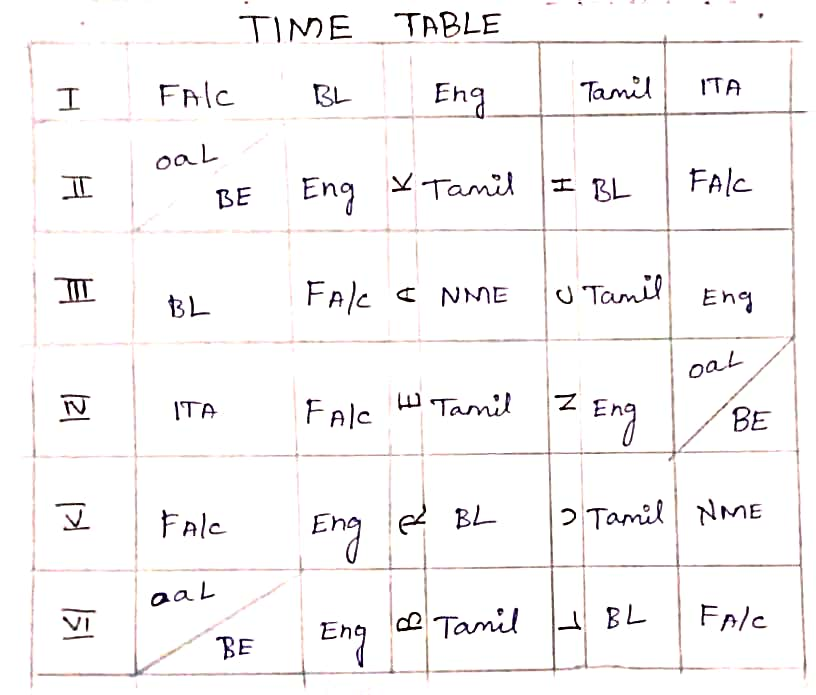 TIME TABLE
I FA/c BL Eng Tamil ITA
II oaL BE Eng K Tamil H BL FA/c
III BL FA/c A NME C Tamil Eng
IV ITA FA/c E Tamil N Eng oaL BE
V FA/c Eng R BL U Tamil NME
VI oaL BE Eng B Tamil L BL FA/c